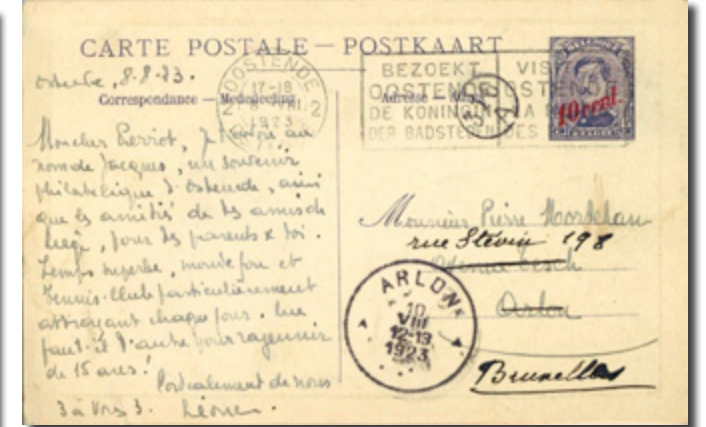 CARTE POSTALE — POSTKAART
Ostende, 8.8.23.
Correspondance — Mededeeling
OOSTENDE
17-18
8 VIII
1923
2
BEZOEKT
OOSTENDE
DE KONINGIN
DER BADSTEDEN
10 cent.
Mon cher Pierrot, je t'envoie au
nom de Jacques, un souvenir
philatélique d'Ostende, ainsi
que les amitiés de tes amis de
Liège, pour tes parents & toi.
Temps superbe, monde fou et
Tennis-Club particulièrement
attrayant chaque jour. Que
faut-il d'autre pour rajeunir
de 15 ans!
Cordialement de nous
3 à vous 3.
Monsieur Pierre
rue Stévin 198
Arlon
Bruxelles
ARLON
10
VIII
12-13
1923